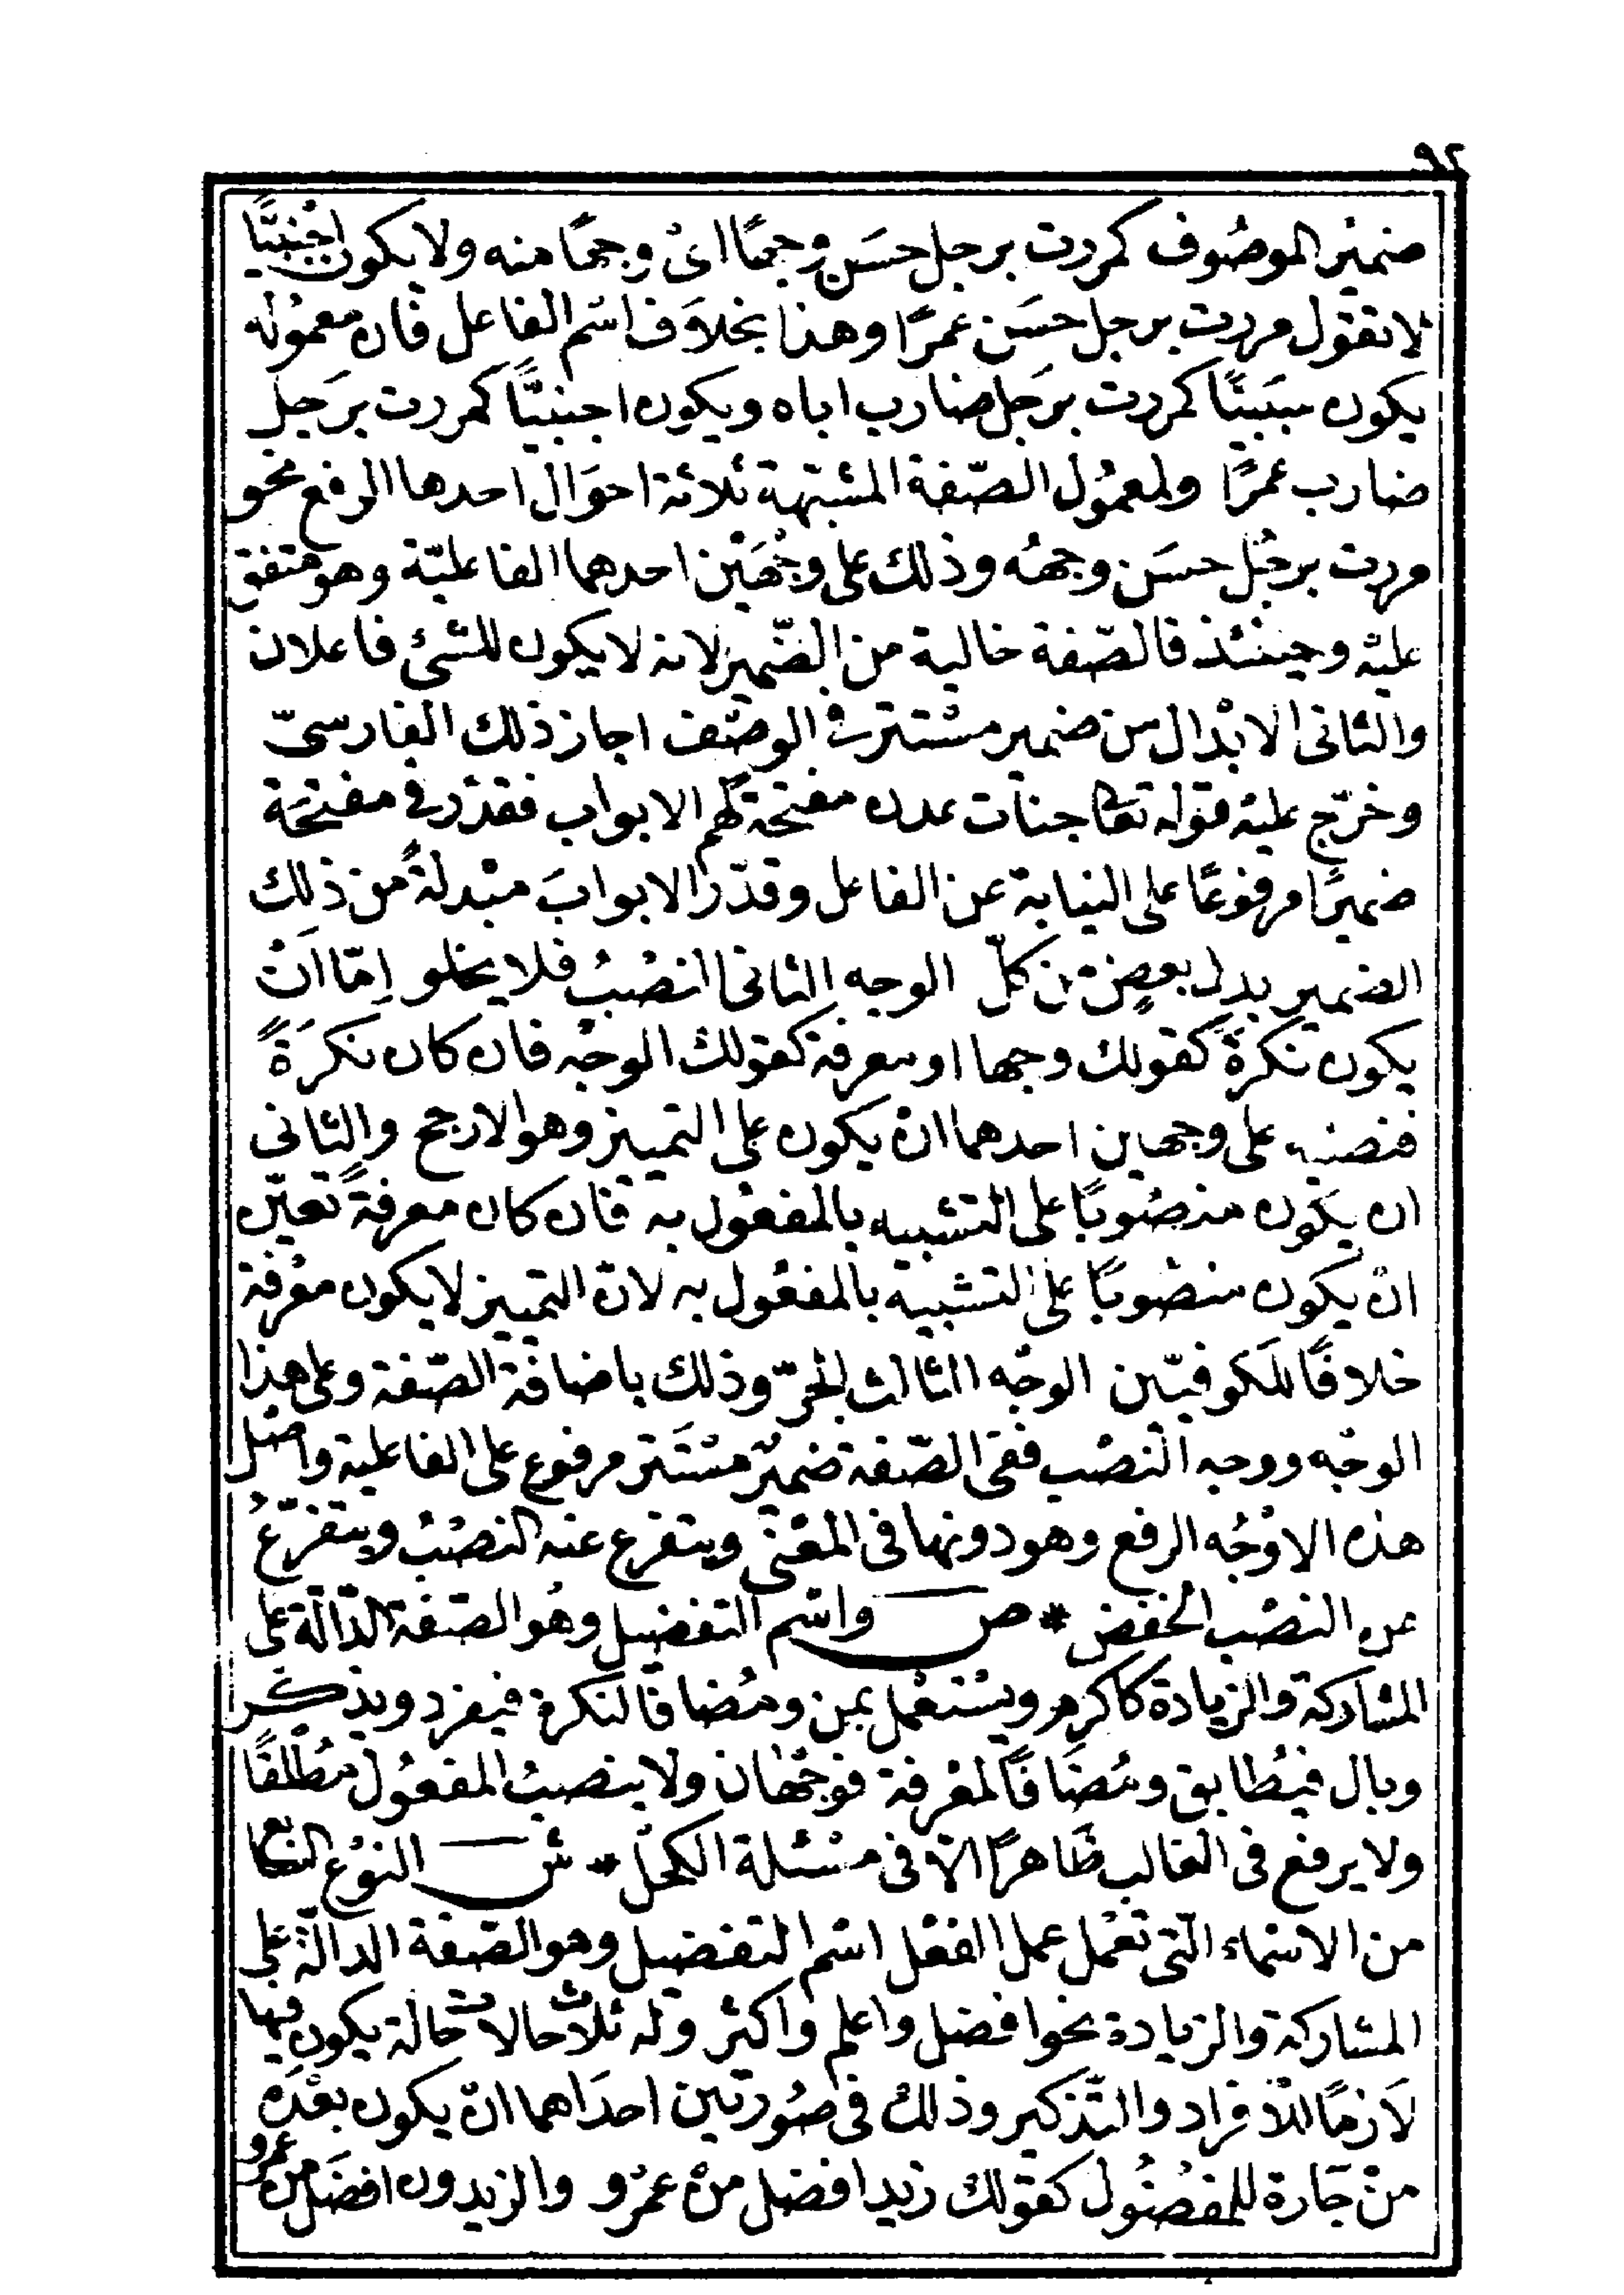 ٩٢
ضمير الموصوف كمررت برجل حسن وجهًا اى وجهًا منه ولا يكون اجنبيًّا
لا تقول مررت برجل حسن عمرًا وهذا بخلاف اسم الفاعل فان معموله
يكون سببيًّا كمررت برجل ضارب اباه ويكون اجنبيًّا كمررت برجل
ضارب عمرًا ولمعمول الصّفة المشبّهة ثلاثة احوال احدها الرفع نحو
مررت برجل حسن وجهه وذلك على وجهين احدهما الفاعليّة وهو متفق
عليه وحينئذ فالصّفة خالية من الضّمير لانه لا يكون للشئ فاعلان
والثانى الابدال من ضمير مستتر فى الوصف اجاز ذلك الفارسىّ
وخرّج عليه قوله تعا جنات عدن مفتحة لهم الابواب فقدّر فى مفتحة
ضميرًا مرفوعًا على النيابة عن الفاعل وقدّر الابواب مبدلةً من ذلك
الضمير بدل بعض من كلّ الوجه الثانى النصب فلا يخلو إمّا ان
يكون نكرةً كقولك وجها او معرفة كقولك الوجه فان كان نكرَةً
فنصبه على وجهين احدهما ان يكون على التمييز وهو الارجح والثانى
ان يكون منصوبًا على التشبيه بالمفعول به فان كان معرفةً تعيّن
ان يكون منصوبًا على التشبيه بالمفعول به لانّ التمييز لا يكون معرفة
خلافًا للكوفيّين الوجه الثالث الجرّ وذلك باضافة الصّفة وعلى هذا
الوجه ووجه النصب ففى الصّفة ضميرٌ مستتر مرفوع على الفاعلية واصل
هذه الاوجه الرفع وهو دونها فى المعنى ويتفرع عنه النصب ويتفرّعُ
عن النصب الخفض * ص واسم التفضيل وهو الصفة الدّالّة على
المشاركة والزيادة كاكرم ويستعمل بمن ومضافا لنكرة فيفرد ويذكر
وبال فيطابق ومضافًا لمعرفة فوجهان ولا ينصب المفعول مطلقًا
ولا يرفع فى الغالب ظاهرًا الّا فى مسئلة الكحل * ش النوع السابع
من الاسماء الّتى تعمل عمل الفعل اسم التفضيل وهو الصّفة الدالّة على
المشاركة والزيادة نحو افضل واعلم واكثر وله ثلاث حالات حالة يكون فيها
لازمًا للافراد والتّذكير وذلك فى صورتين احداهما ان يكون بعده
من جارة للمفضول كقولك زيد افضل من عمرو والزيدون افضل من عمرو